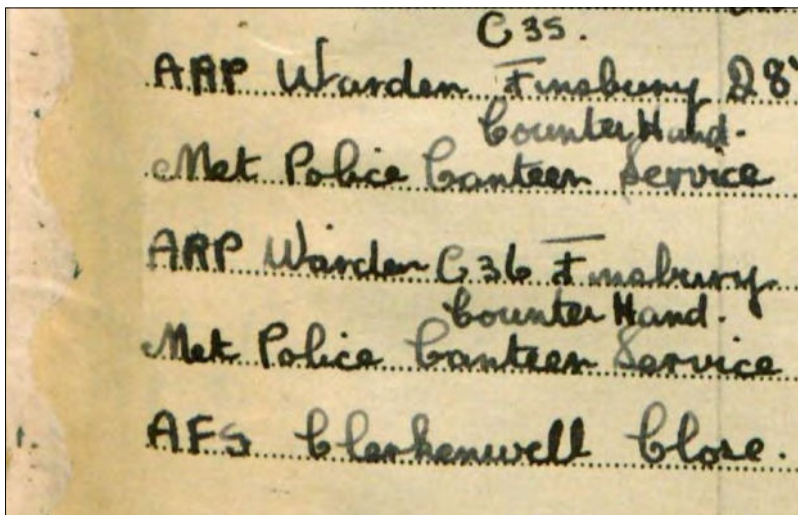 C 35.
ARP Warden Finsbury D 8
Counter Hand.
Met Police Canteen Service
ARP Warden C 36 Finsbury
Counter Hand.
Met Police Canteen Service
AFS Clerkenwell Close.